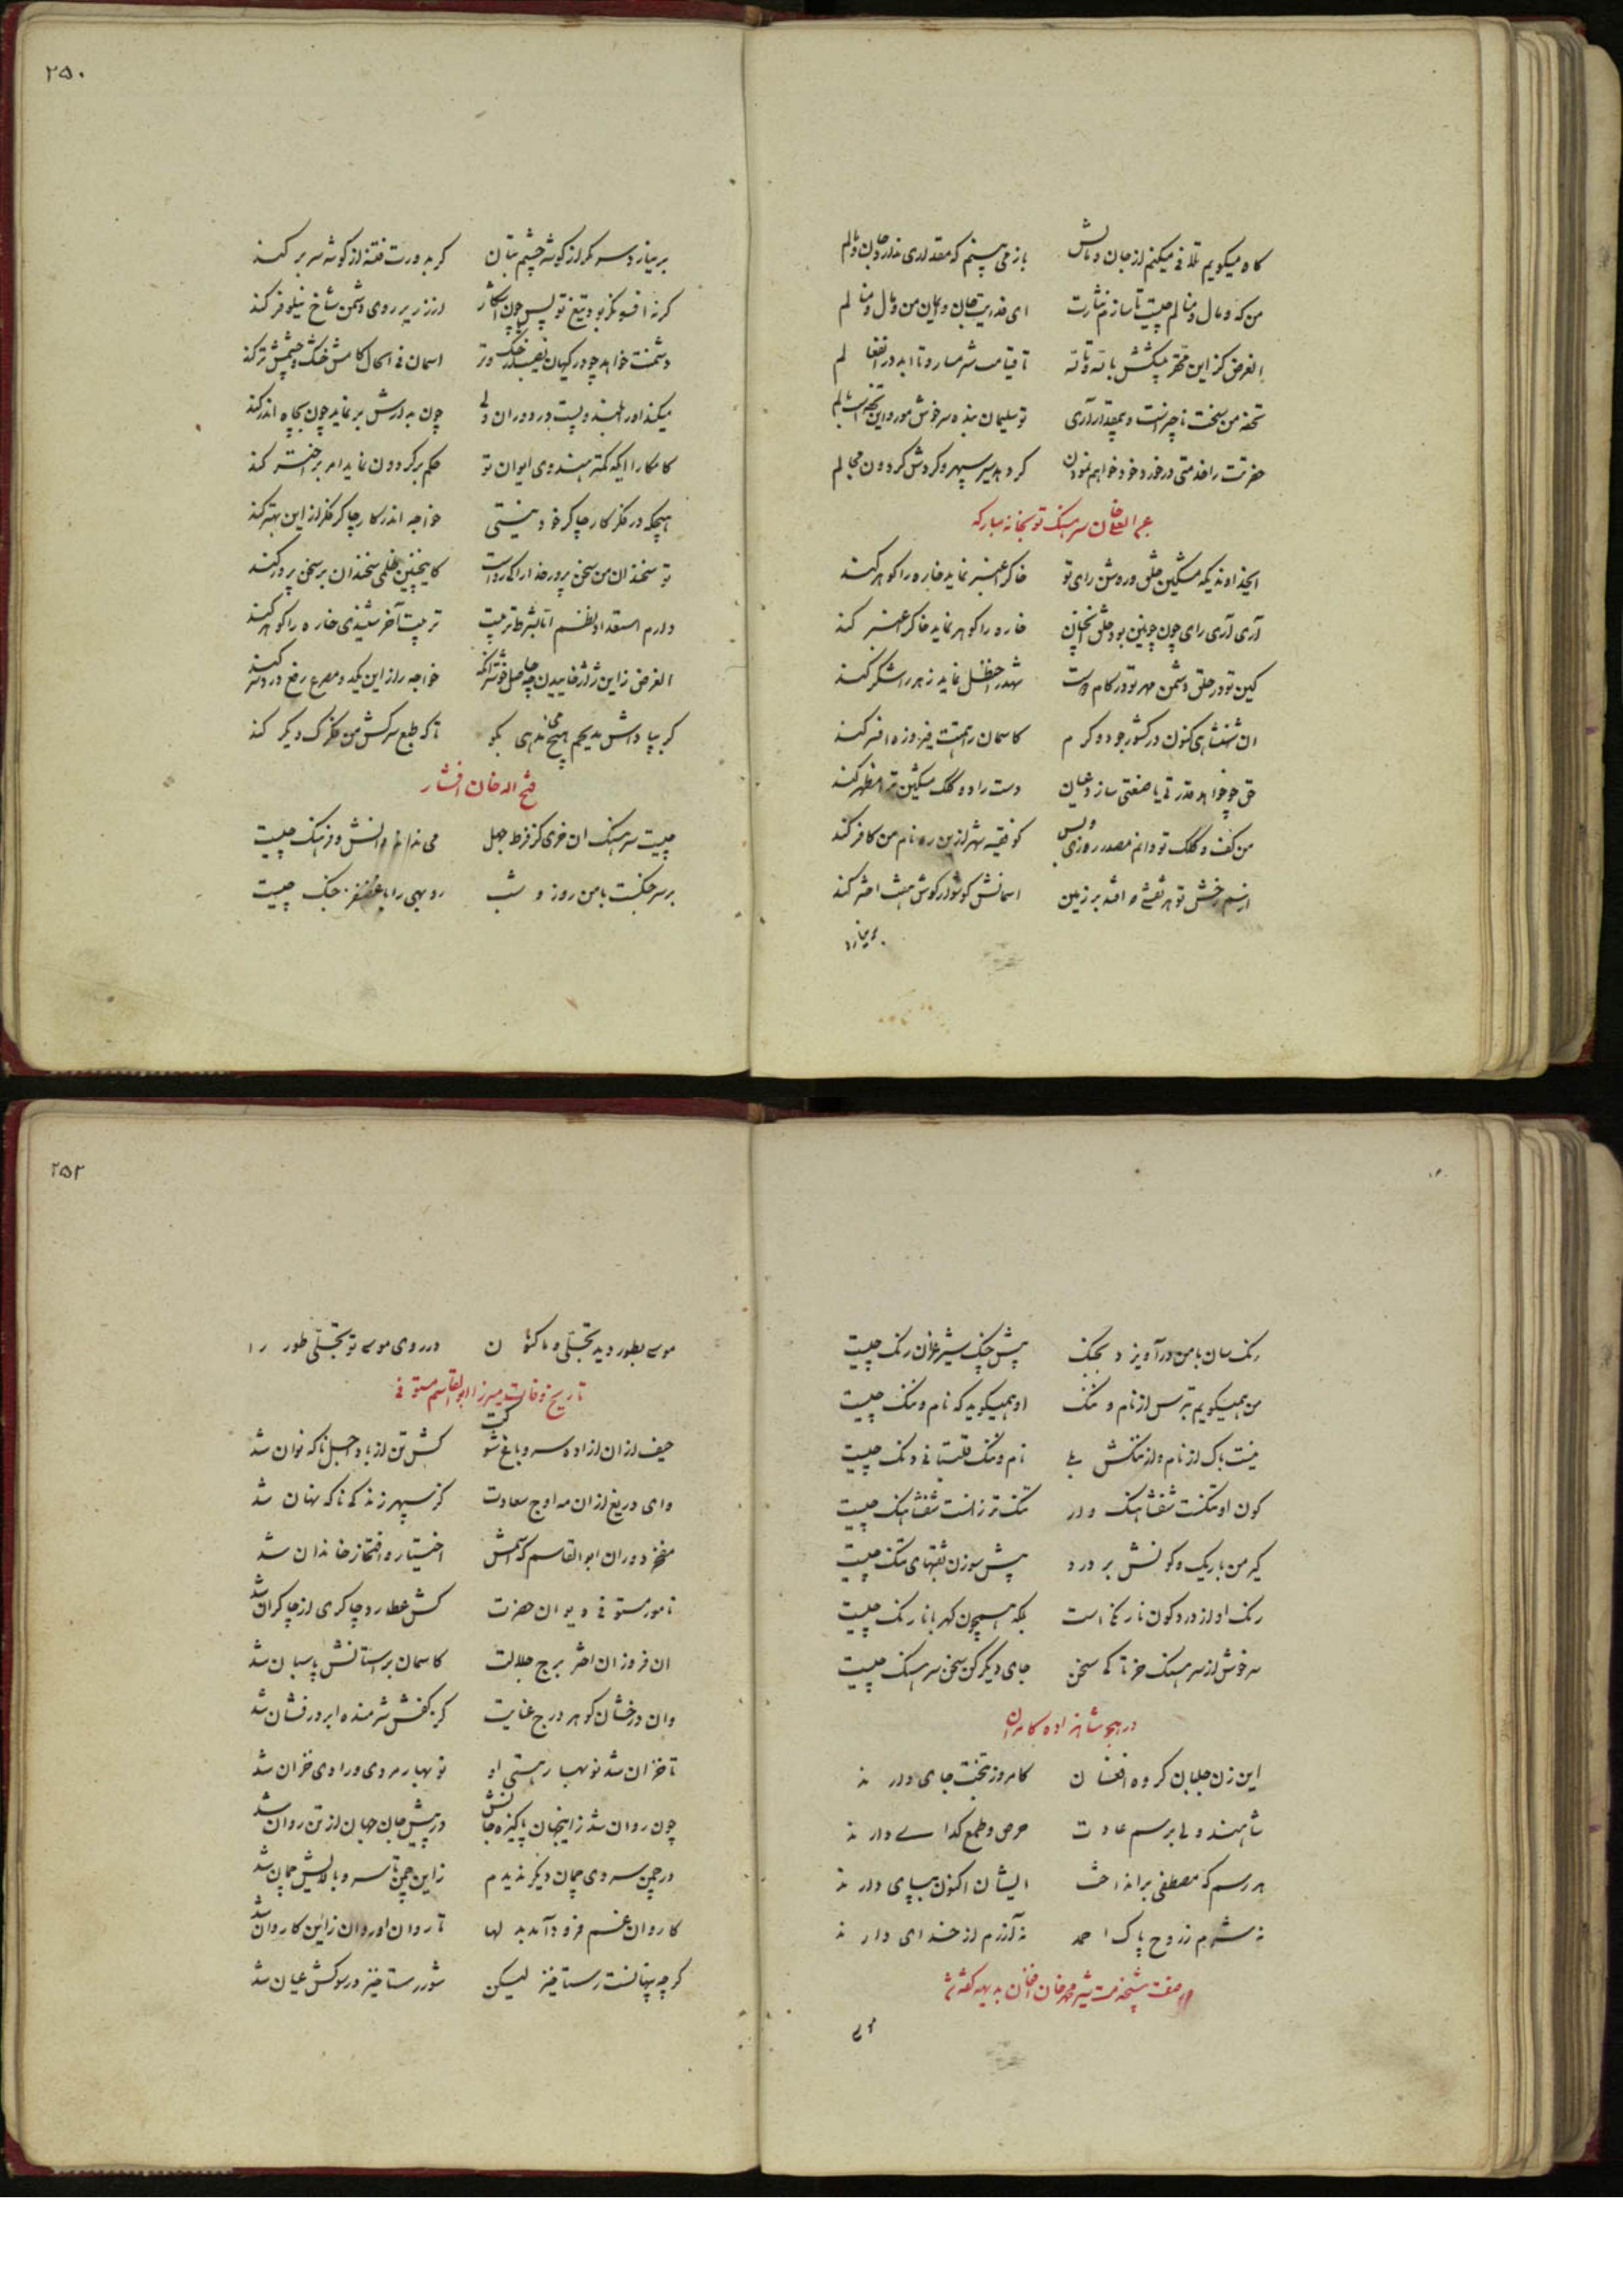 گاه میگویم تلافی میکنم از جان و مالش    باز می بینم که مقداری ندارد جان و مالم
من که و مال و منالم چیست تا سازم نثارت    ای فدایت جان و ایمان من و مال و منالم
الغرض کز این محقر پیشکش بالله و تالله    تا قیامت شرمسار و تا ابد در انفعالم
تحفه من سخت ناچیز است و بیمقدار آری    تو سلیمان بنده سرخوش مور و این تحفه است بالم
حضرتت را خدمتی در خورد خود خواهم نمودن    گر دهد سیر سپهر و گردش گردون مجالم
سرهنگ توپخانه مبارکه
ایخداوندیکه مشکین خلق و روشن رای تو    خاک را عنبر نماید خاره را گوهر کند
آری آری رای چون چونین بود خلق آنچنان    خاره را گوهر نماید خاک را عنبر کند
کین تو در حلق دشمن مهر تو در کام دوست    شهد را حنظل نماید زهر را شکر کند
آن شهنشاهی کنون در کشور جود و کرم    کاسمان را همتت فیروزه افسر کند
حق چو خواهد قدرتی یا صنعتی سازد عیان    دست راد و کلک مشکین ترا مظهر کند
من کف و کلک تو دانم مصدر روزی و بس    گو فقیه شهر از این ره نام من کافر کند
از سم رخش تو هر نقشی که افتد بر زمین    آسمانش گوشوار گوش هفت اختر کند
بی نیازا
۲۵۰
بی نیاز دسر مگر از گوشه چشم بتان    گر بدورت فتنه از گوشه سر بر کند
گر نه افسونگر بود تیغ تو پس چون آشکار    از زریر روی دشمن شاخ نیلوفر کند
دشمنت خواهد چو در گیهان نصیب از خشک و تر    آسمان فی الحال کامش خشک و چشمش تر کند
میکند او را بلند و پست در دوران ولی    چون بدارش بر نماید چون بچاه اندر کند
کامکارا ایکه کمتر هندوی ایوان تو    حکم بر گردون نماید امر بر اختر کند
هیچگه در فکر کار چاکر خود نیستی    خواجه اندر کار چاکر فکر از این بهتر کند
تو سخندان من سخن پرور خدا را کی رواست    کاینچنین ظلمی سخندان بر سخن پرور کند
دارم استعداد نظم اما بشرط تربیت    تربیت آخر شنیدی خاره را گوهر کند
الغرض زاین ژاژ خاییدن چه حاصل خوشتر آنکه    خواجه را زاین یکدو مصرع رفع درد سر کند
گر بپاداش مدیحم هیچ می ندهی بگو    تا که طبع سرکش من فکرک دیگر کند
فتح اله خان افشار
چیست سرهنگ آن خری کز فرط جهل    می نداند دانش و فرهنگ چیست
بر سر جنگست با من روز و شب    روبهی را با غضنفر جنگ چیست
رنگ سان با من در آویزد بجنگ    پیش چنگ شیر غران رنگ چیست
من همیگویم بترس از نام و ننگ    او همیگوید که نام و ننگ چیست
نیست باک از نام و از ننگش بلی    نام و ننگ قلتبانی دنگ چیست
کون او تنگست شفتاهنگ وار    تنگ تر زانست شفتاهنگ چیست
کیر من باریک و کونش بر درد    پیش سوزن ثقبهای تنگ چیست
رنگ او از درد کون نارنجی است    بلکه همچون کهربا نارنگ چیست
سرخوش از سرهنگ خر تا کی سخن    جای دیگر کن سخن سرهنگ چیست
در هجو شاهزاده کامران
این زن جلبان گروه افغان    کامروز بتخت جای دارند
شاهند ولی برسم عادت    حرص و طمع گدایی دارند
هر رسم که مصطفی برانداخت    ایشان اکنون بپای دارند
نه شرم ز روح پاک احمد    نه آزرم از خدای دارند
خان افغان بدیهه گفته شد
موسی
۲۵۲
موسی بطور دید تجلی و ما کنون    در روی موسی تو تجلی طور را
تاریخ وفات میرزا ابوالقاسم مستوفی
حیف از آن آزاده سرو باغ شوکت    کش تن از باد اجل ناگه نوان شد
وای دریغ از آن مه اوج سعادت    کز سپهر زندگی ناگه نهان شد
مفخر دوران ابوالقاسم که اسمش    اختیار و افتخار خاندان شد
نامور مستوفی دیوان حضرت    کش عطارد چاکری از چاکران شد
آن فروزان اختر برج جلالت    کاسمان بر آستانش پاسبان شد
وان درخشان گوهر درج عنایت    کز کفش شرمنده ابر درفشان شد
تا خزان شد نوبهار هستی او    نوبهار مردی و رادی خزان شد
چون روان شد زاینجهان پاکیزه جانش    در پیش جان جهان از تن روان شد
در چمن سروی چمان دیگر ندیدم    زاین چمن تا سرو بالایش چمان شد
کاروان غم فرود آمد بدلها    تا روان او روان زاین کاروان شد
گرچه پنهانست رستاخیز لیکن    شور رستاخیز در سوگش عیان شد